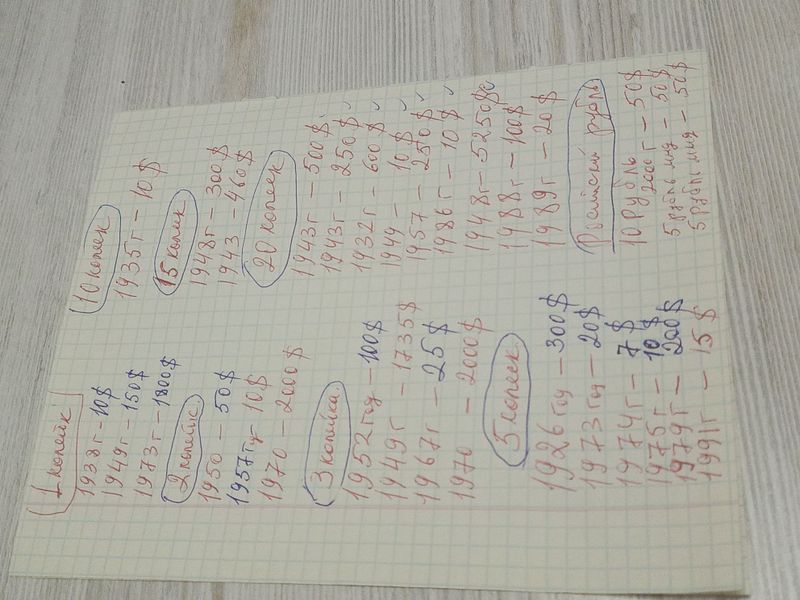 1 копейк
1938г - 10$
1949г - 150$
1973г - 1800$
2 копейк
1950 - 50$
1957гу - 10$
1970 - 2000$
3 копейка
1952 год - 100$
1949г - 1735$
1967г - 25$
1970 - 2000$
5 копеек
1926 год - 300$
1973 год - 20$
1974г - 7$
1975г - 10$
1979г - 200$
1991г - 15$
10 копеек
1935г - 10$
15 копик
1948г - 300$
1943 - 460$
20 копеек
1943г - 500$
1943г - 250$
1932г - 600$
1949 - 10$
1957 - 250$
1986г - 10$
1948г - 5250$
1988г - 100$
1989г - 20$
Расийский рубль
10 рубль
2000г - 50$
5 рубль мид - 50$
5 рубль мид - 50$